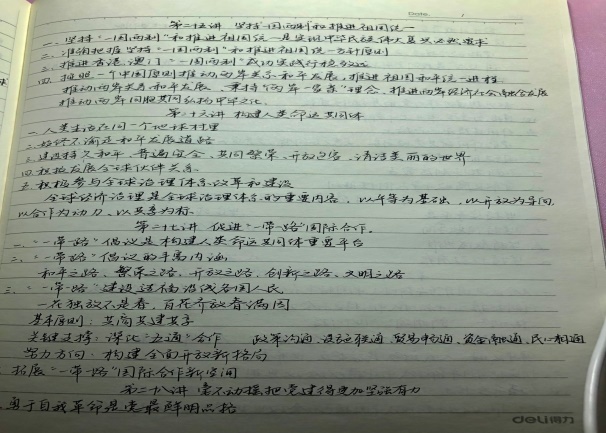 Date.
第二十五讲 坚持"一国两制"和推进祖国统一
一、坚持"一国两制"和推进祖国统一是实现中华民族伟大复兴必然要求
二、准确把握坚持"一国两制"和推进祖国统一方针原则
三、推进香港、澳门"一国两制"成功实践行稳致远
四、按照一个中国原则推动两岸关系和平发展,推进祖国和平统一进程
推动两岸关系和平发展 秉持"两岸一家亲"理念、推进两岸经济社会融合发展
推动两岸同胞共同弘扬中华文化
第二十六讲 构建人类命运共同体
一、人类生活在同一个地球村里
二、始终不渝走和平发展道路
三、建设持久和平、普遍安全、共同繁荣、开放包容、清洁美丽的世界
四、积极发展全球伙伴关系
五、积极参与全球治理体系改革和建设
全球经济治理是全球治理体系的重要内容,以平等为基础、以开放为导向
以合作为动力、以共享为标
第二十七讲 促进"一带一路"国际合作
一、"一带一路"倡议是构建人类命运共同体重要平台
二、"一带一路"倡议的丰富内涵
和平之路、繁荣之路、开放之路、创新之路、文明之路
三、"一带一路"建设造福沿线各国人民
一花独放不是春,百花齐放春满园
基本原则:共商共建共享
关键支撑:深化"五通"合作 政策沟通、设施联通、贸易畅通、资金融通、民心相通
努力方向:构建全面开放新格局
拓展"一带一路"国际合作新空间
第二十八讲 毫不动摇把党建得更加坚强有力
勇于自我革命是党最鲜明品格
deli得力